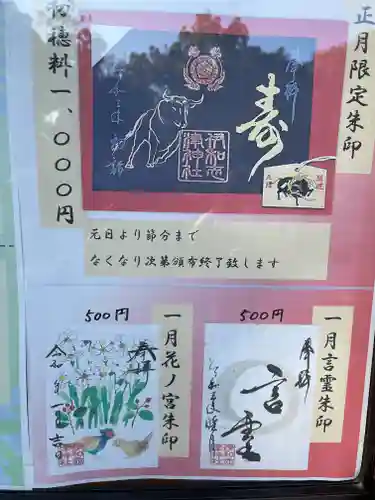 正月限定朱印
初穂料一、〇〇〇円
奉拝
寿
伊和志
津神社
元日より節分まで
なくなり次第頒布終了致します
500円
一月花ノ宮朱印
奉拝
500円
一月言霊朱印
奉拝
言霊